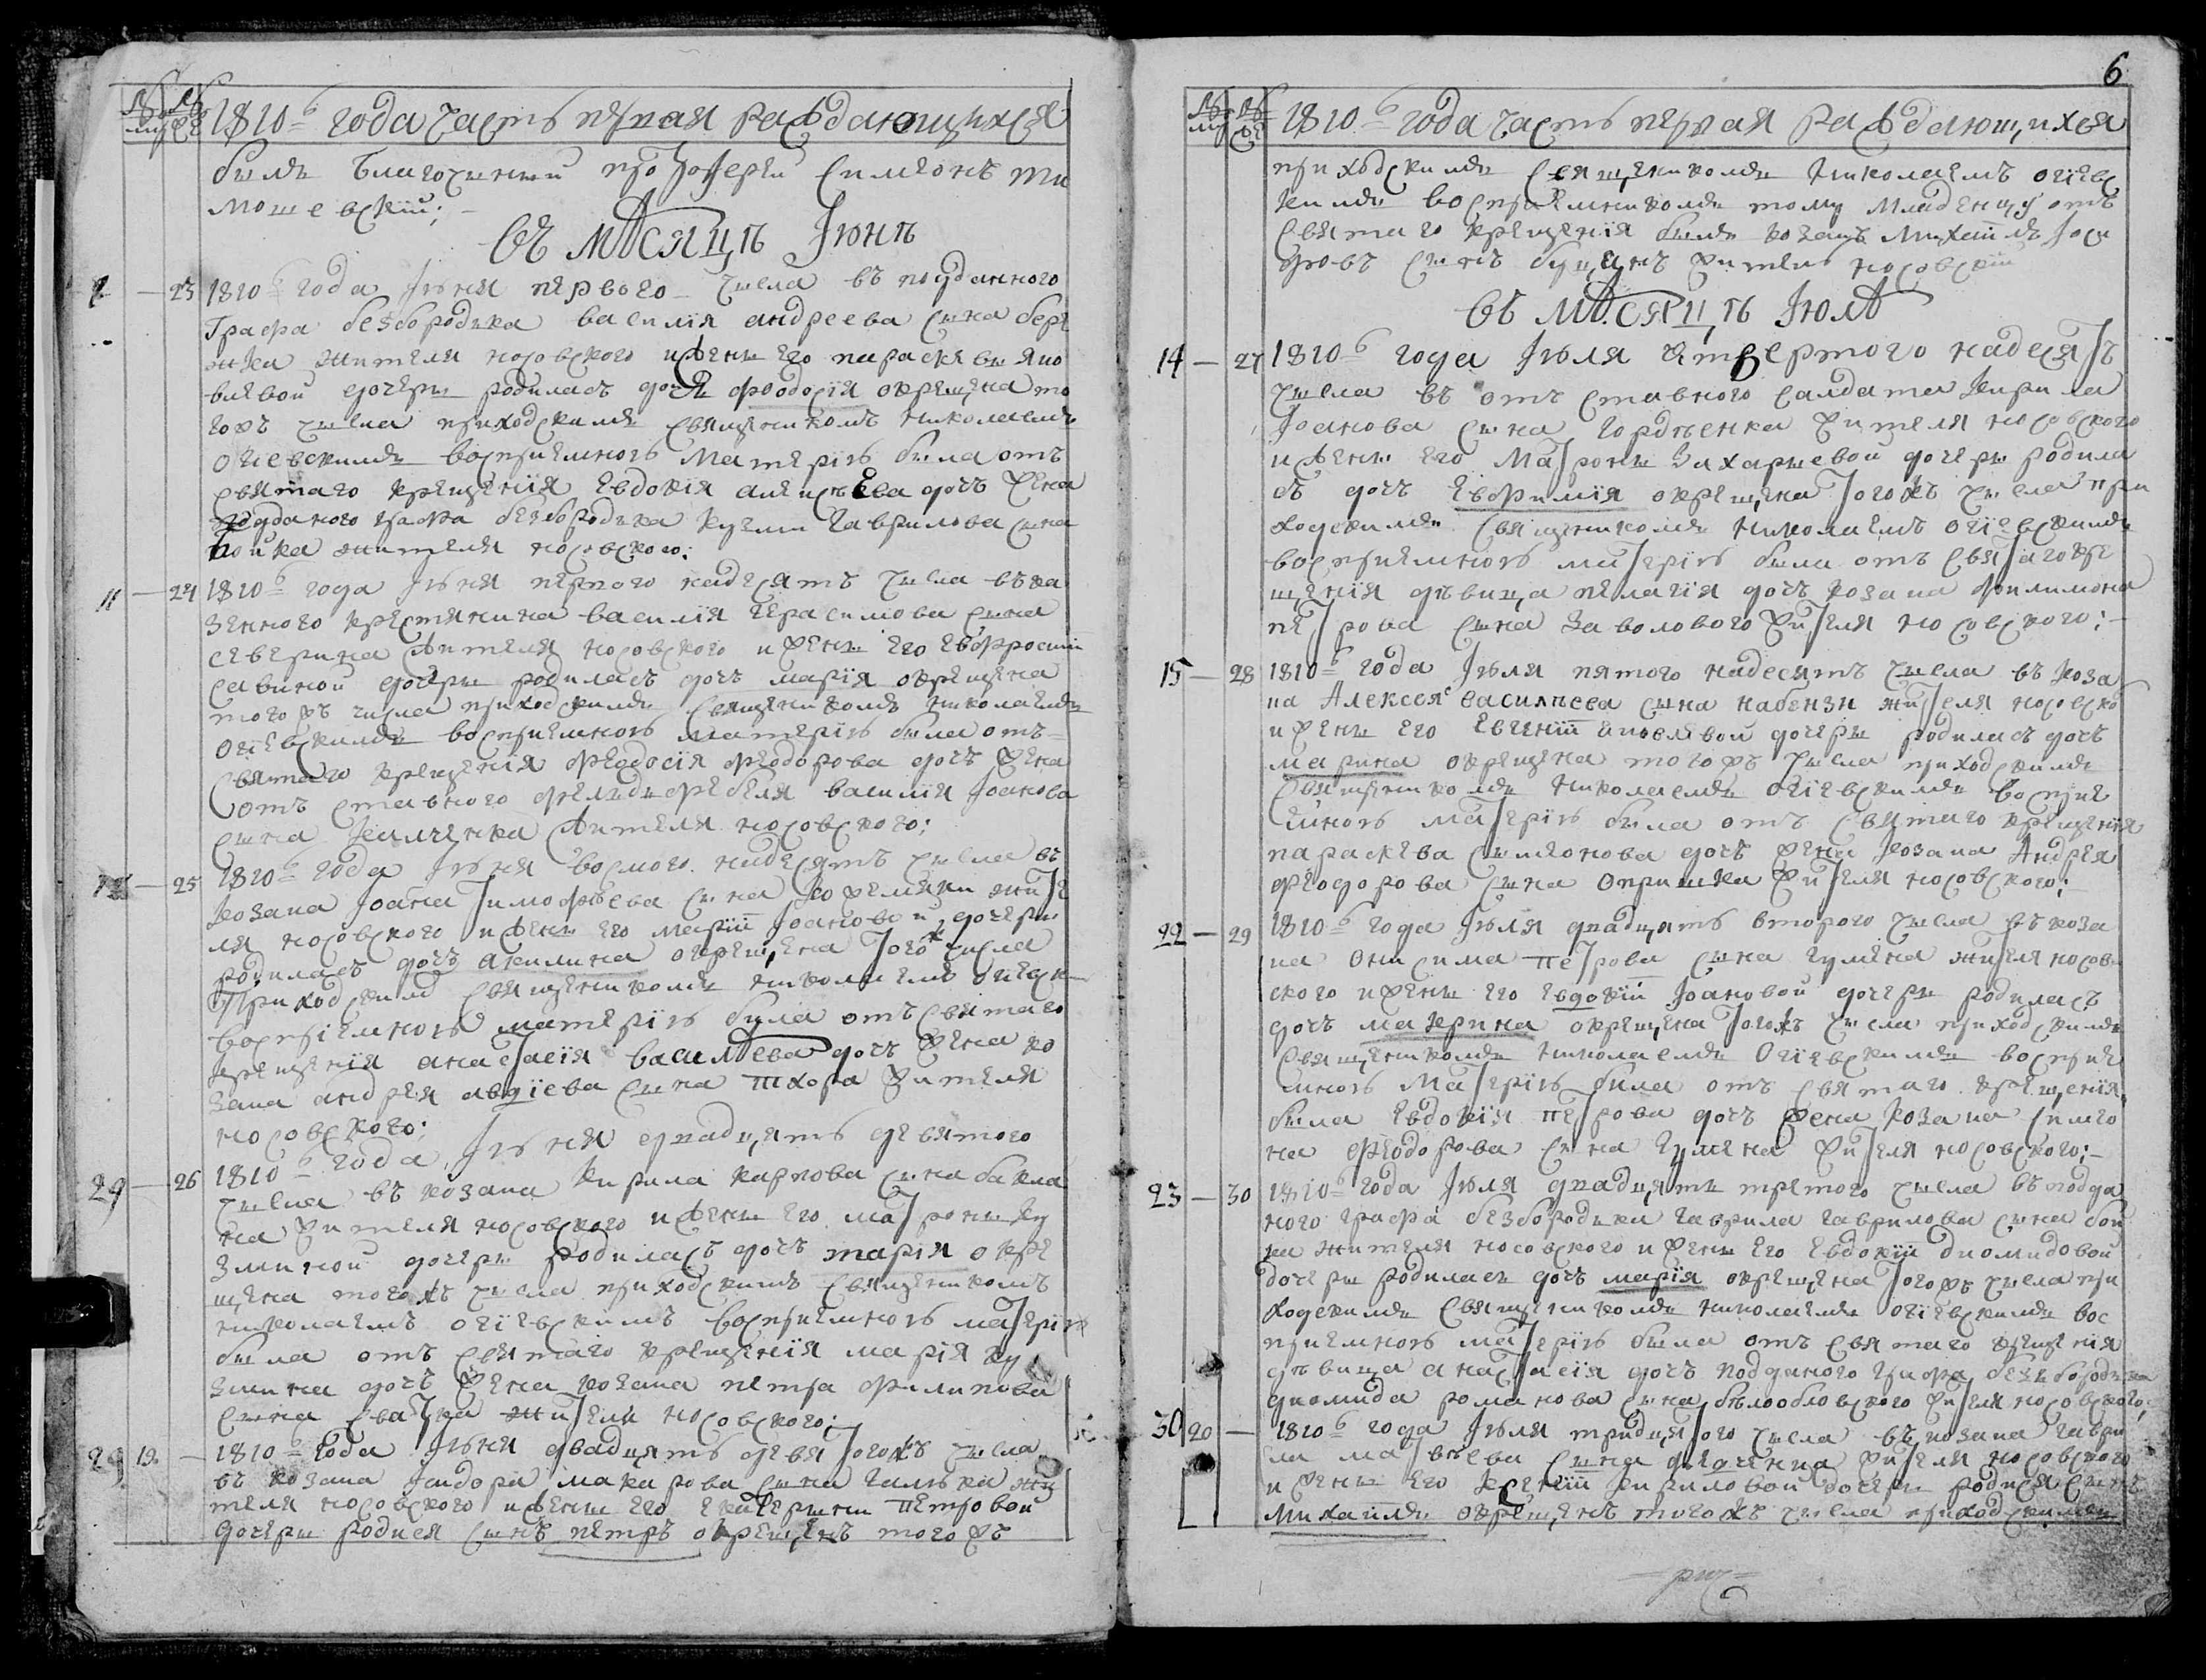 1810го года часть первая раждающихся
былъ благочинный протоіерей Симеонъ Ти
мошевскій;
въ мѣсяцѣ Іюнѣ
1 — 23 1810го года Іюня перваго числа въ подданного
графа безбородька василія андреева сына
жителя носовского и жены его параскевы
дочеры родилась дочь феодосія окрещена то
гожъ числа приходскимъ священикомъ николаемъ
огіевскимъ воспріемною матерію была отъ
святаго крещенія Евдокія дочь жена
подданого графа безбородька гаврилова сына
бойка жителя носовского:
11 — 24 1810го года Іюня первого надесять числа въ ка
зенного крестянина василія герасимова сына
северина жителя носовского и жены его евфросиніи
савиной дочеры родилась дочь марія окрещена
того жъ числа приходскимъ священикомъ николаемъ
огіевскимъ воспріемною матерію была отъ
святаго крещенія феодосія феодорова дочь жена
отъ ставного василія Іоанова
сына жителя носовского;
— 25 1810го года Іюня восмого надесять числа въ
козака Іоана тимофѣева сына жите
ля носовского и жены его маріи Іоановой дочеры
родилась дочь акилина окрещена тогожъ числа
приходскимъ священикомъ николаемъ огіевск
воспріемною матерію была отъ святаго
крещенія анастасія василѣева дочь жена ко
зака андрея авдіева сына тхора жителя
носовского;
29 — 26 1810го года Іюня двадцять девятого
числа въ козака кирила карпова сына бакла
на жителя носовского и жены его матроны ку
зминой дочеры родилась дочь марія окре
щена тогожъ числа приходскимъ священикомъ
николаемъ огіевскимъ воспріемною матерію
была отъ святаго крещенія марія ку
змина дочь жена козака петра филипова
сына жителя носовского;
29 19. — 1810го года Іюня двадцять девятогожъ числа
въ козака Ісидора макарова сына галька жи
теля носовского и жены его екатерины петровой
дочеры родися сынъ петръ окрещенъ того жъ
6
1810го года часть первая раждающихся
приходскимъ священикомъ николаемъ огіевс
кимъ воспріемникомъ тому младенцу отъ
святаго крещенія былъ козакъ михаилъ
сынъ житель носовскій
въ мѣсяцѣ Іюлѣ
14 — 27 1810го года Іюля четвертого надесять
числа въ отъставного салдата кирила
Іоанова сына гордѣенка жителя носовского
и жены его матроны захарыевой дочеры родила
сь дочь евфимія окрещена тогожъ числа при
ходскимъ священикомъ николаемъ огіевскимъ
воспріемною матерію была отъ святаго кре
щенія дѣвица пелагія дочь козака филимона
петрова сына заволового жителя носовского;
15 — 28 1810го года Іюля пятого надесять числа въ коза
ка Алексея василѣева сына набензи жителя носовско
и жены его евгеніи дочеры родилась дочь
марина окрещена тогожъ числа приходскимъ
священикомъ николаемъ огіевскимъ воспріе
мною матерію была отъ святаго крещенія
параскева симеонова дочь жена козака Андрея
феодорова сына опришка жителя носовского;
22 — 29 1810го года Іюля двадцять второго числа въ коза
ка онисима петрова сына гумена жителя носов
ского и жены его евдокіи Іоановой дочеры родилась
дочь макрина окрещена тогожъ числа приходскимъ
священикомъ николаемъ огіевскимъ воспріе
мною матерію была отъ святаго крещенія
была евдокія петрова дочь жена козака симео
на феодорова сына гумена жителя носовского;
23 — 30 1810го года Іюля двадцять третого числа въ подда
ного графа безбородька гаврила гаврилова сына бой
ка жителя носовского и жены его евдокіи диомидовой
дочеры родилась дочь марія окрещена тогожъ числа при
ходскимъ священикомъ николаемъ огіевскимъ вос
пріемною матерію была отъ святаго крещенія
дѣвица анастасія дочь подданого графа безбородька
диомида романова сына жителя носовского;
30 20 — 1810го года Іюля тридцятого числа въ козака гаври
ла матвѣева сына жителя носовского
и жены его ксеніи кириловой дочеры родися сынъ
михаилъ окрещенъ тогожъ числа приходскимъ